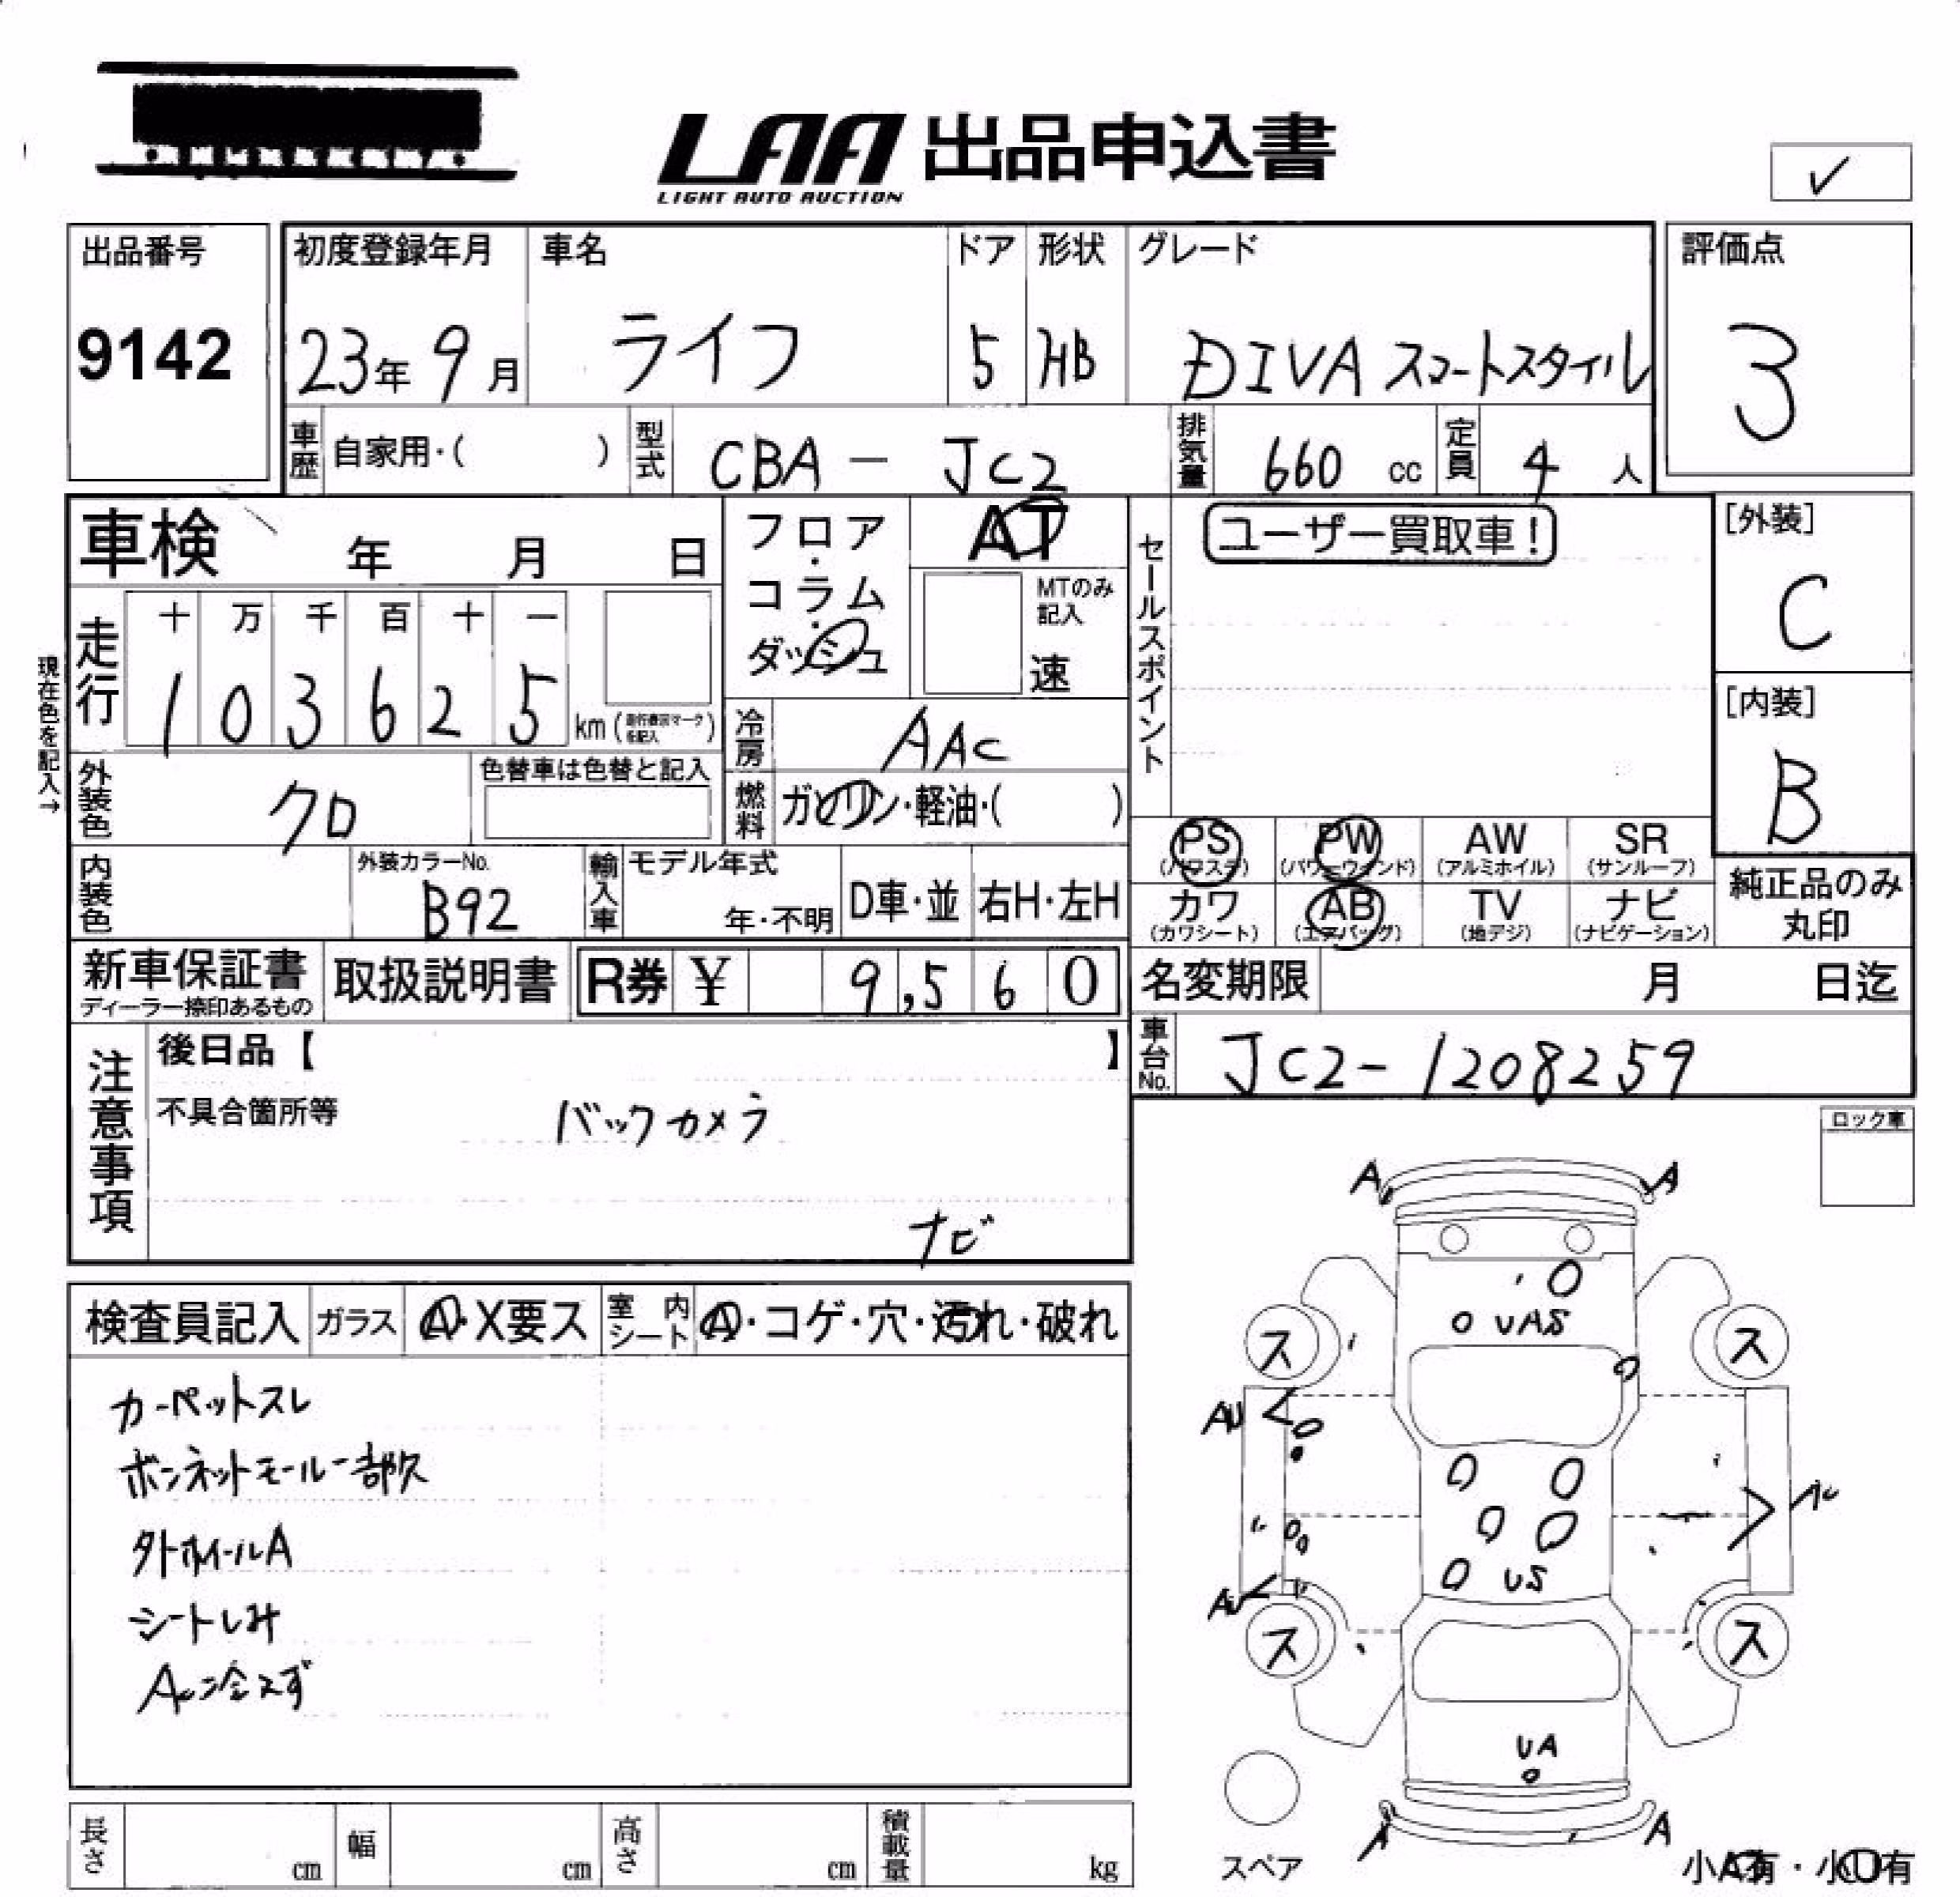 LAA 出品申込書
LIGHT AUTO AUCTION
✓
出品番号
9142
初度登録年月
23年9月
車名
ライフ
ドア
5
形状
HB
グレード
DIVA スマートスタイル
評価点
3
車歴 自家用・( )
型式 CBA - JC2
排気量 660 cc
定員 4 人
車検 年 月 日
フロア・コラム・ダッシュ
AT
MTのみ記入
速
セールスポイント
ユーザー買取車!
[外装]
C
[内装]
B
現在色を記入→
走行
十 万 千 百 十 一
1 0 3 6 2 5 km
冷房 AAC
燃料 ガソリン・軽油・( )
外装色 クロ
色替車は色替と記入
内装色
外装カラーNo.
B92
輸入車
モデル年式
年・不明
D車・並
右H・左H
PS
(パワステ)
PW
(パワーウィンド)
AW
(アルミホイル)
SR
(サンルーフ)
カワ
(カワシート)
AB
(エアバッグ)
TV
(地デジ)
ナビ
(ナビゲーション)
純正品のみ
丸印
新車保証書
ディーラー捺印あるもの
取扱説明書
R券 ¥ 9,560
名変期限 月 日迄
車台No. JC2-1208259
注意事項
後日品【 】
不具合箇所等
バックカメラ
ナビ
ロック車
検査員記入
ガラス A・X要ス
室内シート A・コゲ・穴・汚れ・破れ
カーペットスレ
ボンネットモール一部欠
シートしみ
AC冷えず
A A
UAS
ス ス
AU
US
ス ス
UA
A A
スペア
小A有・小U有
長さ cm
幅 cm
高さ cm
積載量 kg